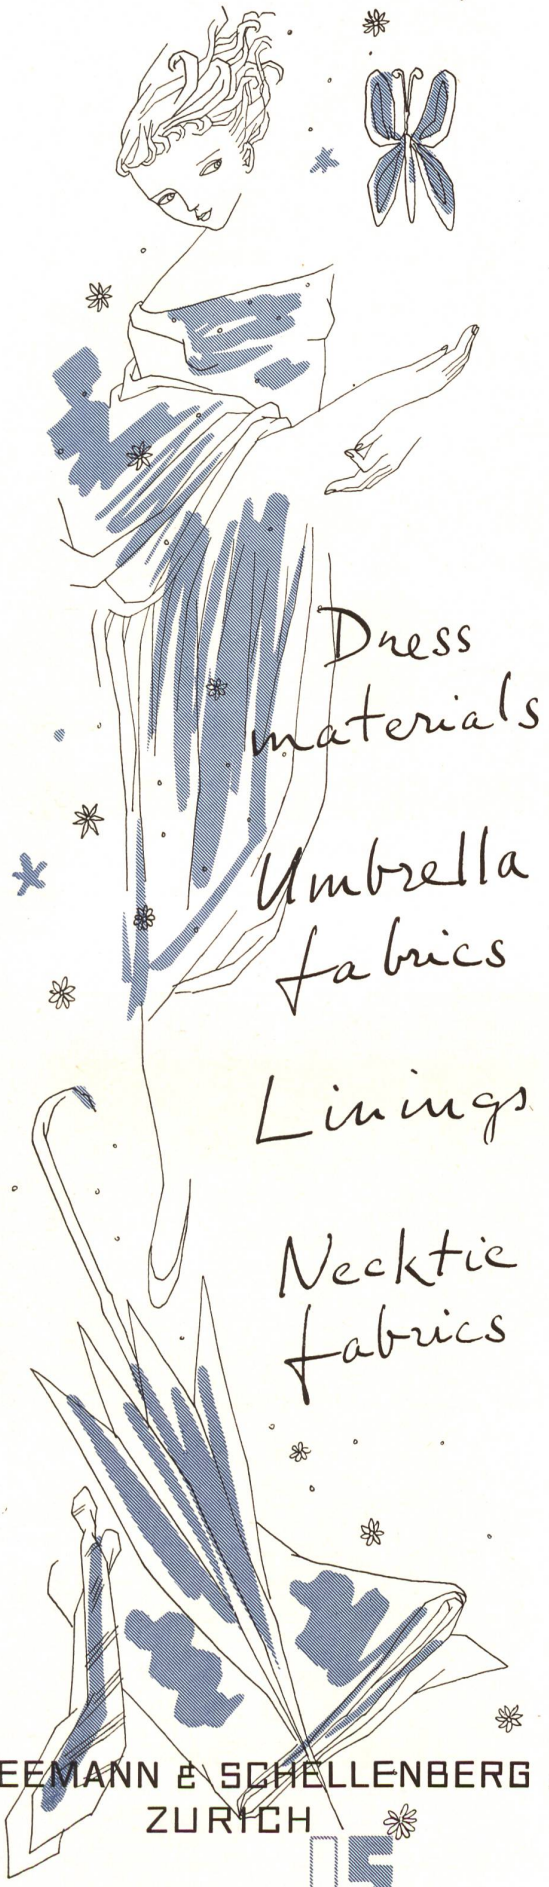 Dress
materials
Umbrella
fabrics
Linings
Necktie
fabrics
EEMANN & SCHELLENBERG
ZURICH